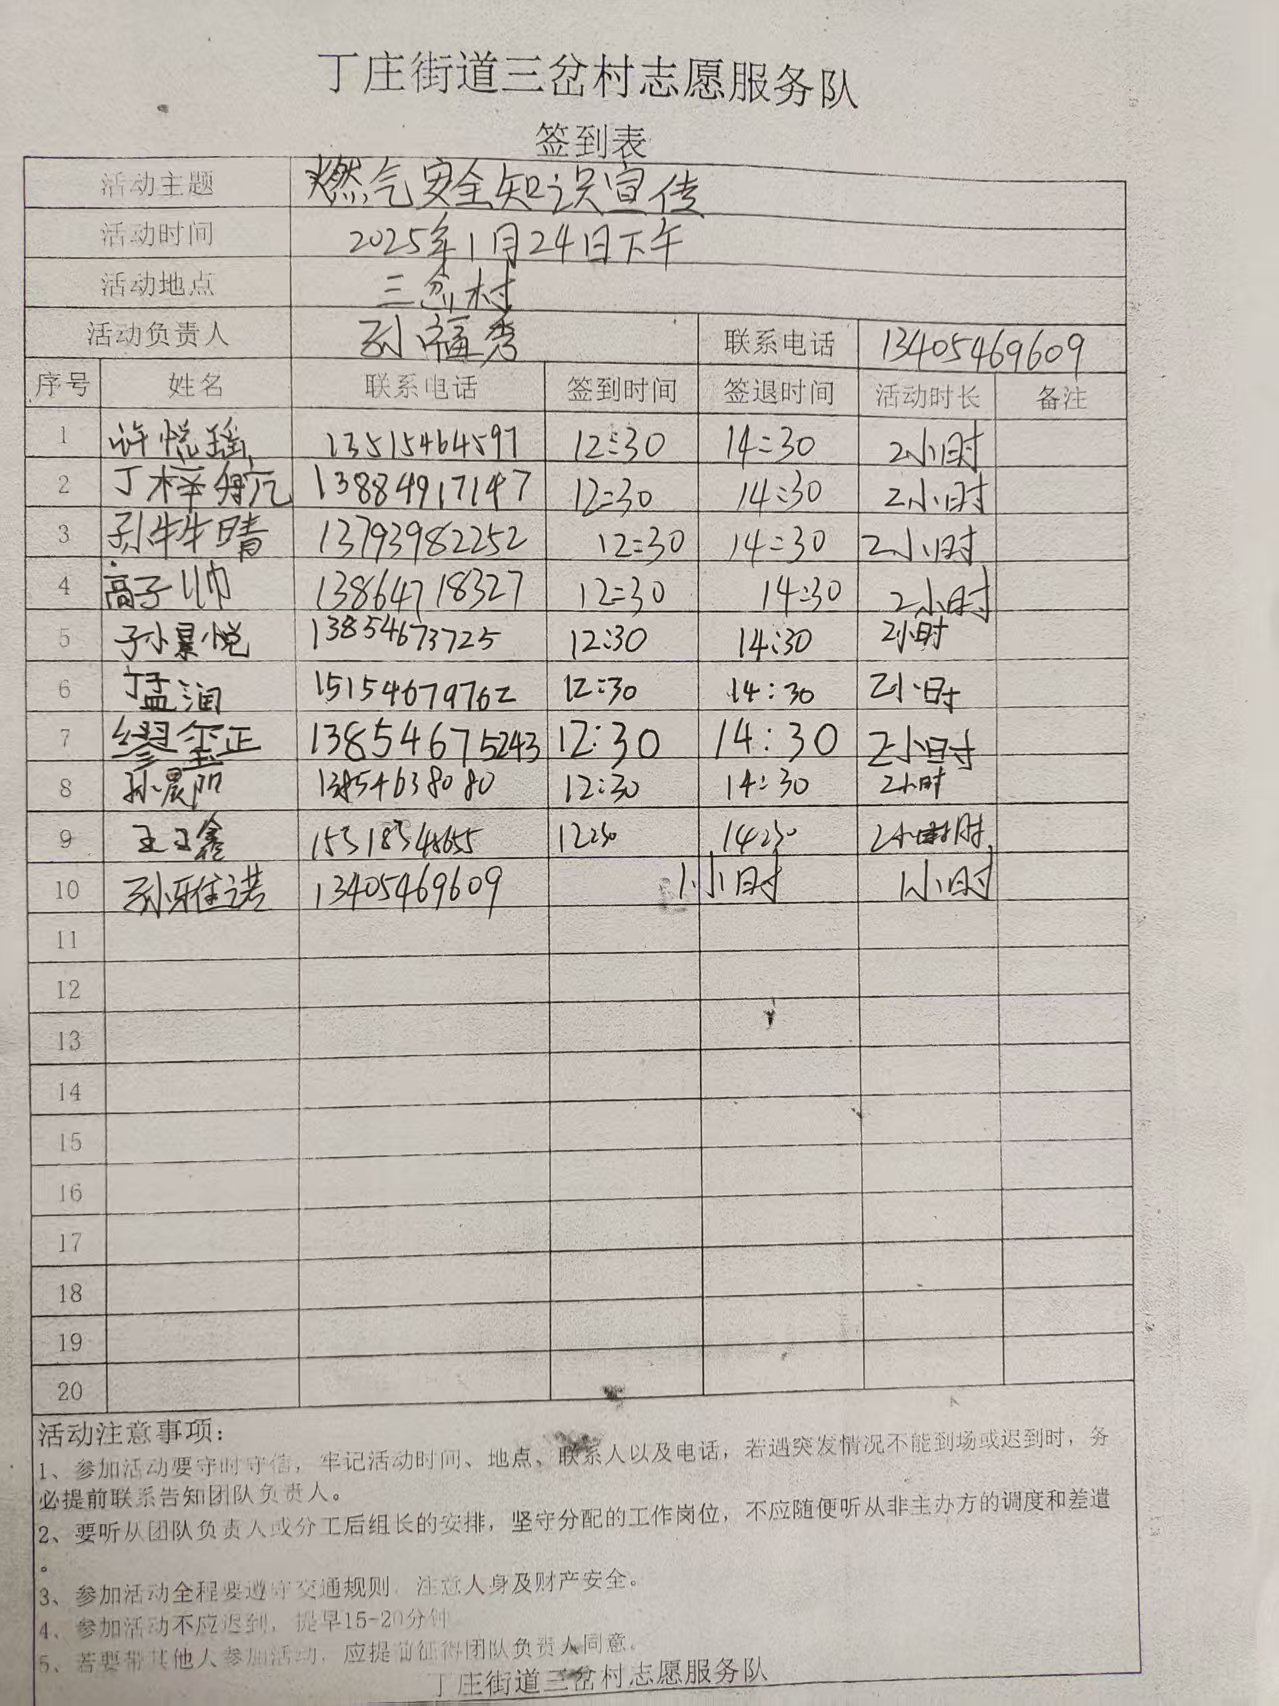 丁庄街道三岔村志愿服务队
签到表
活动主题 燃气安全知识宣传
活动时间 2025年1月24日下午
活动地点 三岔村
活动负责人 孙福秀 联系电话 13405469609
序号 姓名 联系电话 签到时间 签退时间 活动时长 备注
1 许悦瑶 13515464597 12:30 14:30 2小时
2 丁梓航 13884917147 12:30 14:30 2小时
3 孙牪晴 13793982252 12:30 14:30 2小时
4 高子帅 13864718327 12:30 14:30 2小时
5 孙景悦 13854673725 12:30 14:30 2小时
6 丁孟润 15154679762 12:30 14:30 2小时
7 缪玺正 13854675243 12:30 14:30 2小时
8 孙晨阳 13854638080 12:30 14:30 2小时
9 王玉鑫 12:30 14:30 2小时
10 孙雅诺 13405469609 1小时 1小时
11
12
13
14
15
16
17
18
19
20
活动注意事项：
1、参加活动要守时守信，牢记活动时间、地点、联系人以及电话，若遇突发情况不能到场或迟到时，务
必提前联系告知团队负责人。
2、要听从团队负责人或分工后组长的安排，坚守分配的工作岗位，不应随便听从非主办方的调度和差遣
。
3、参加活动全程要遵守交通规则，注意人身及财产安全。
4、参加活动不应迟到，提早15-20分钟
5、若要带其他人参加活动，应提前征得团队负责人同意。
丁庄街道三岔村志愿服务队